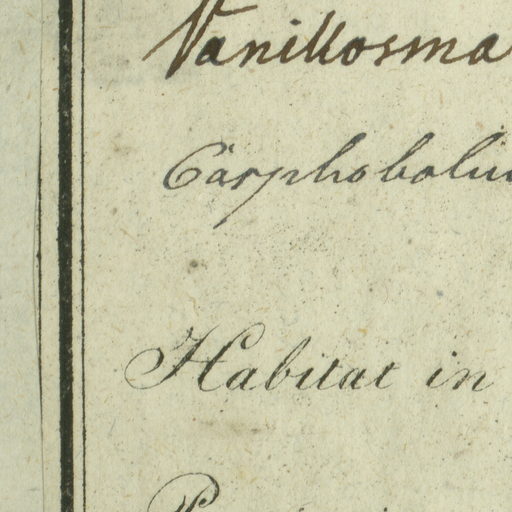 Vanikosma
Carphobolu
Habitat in